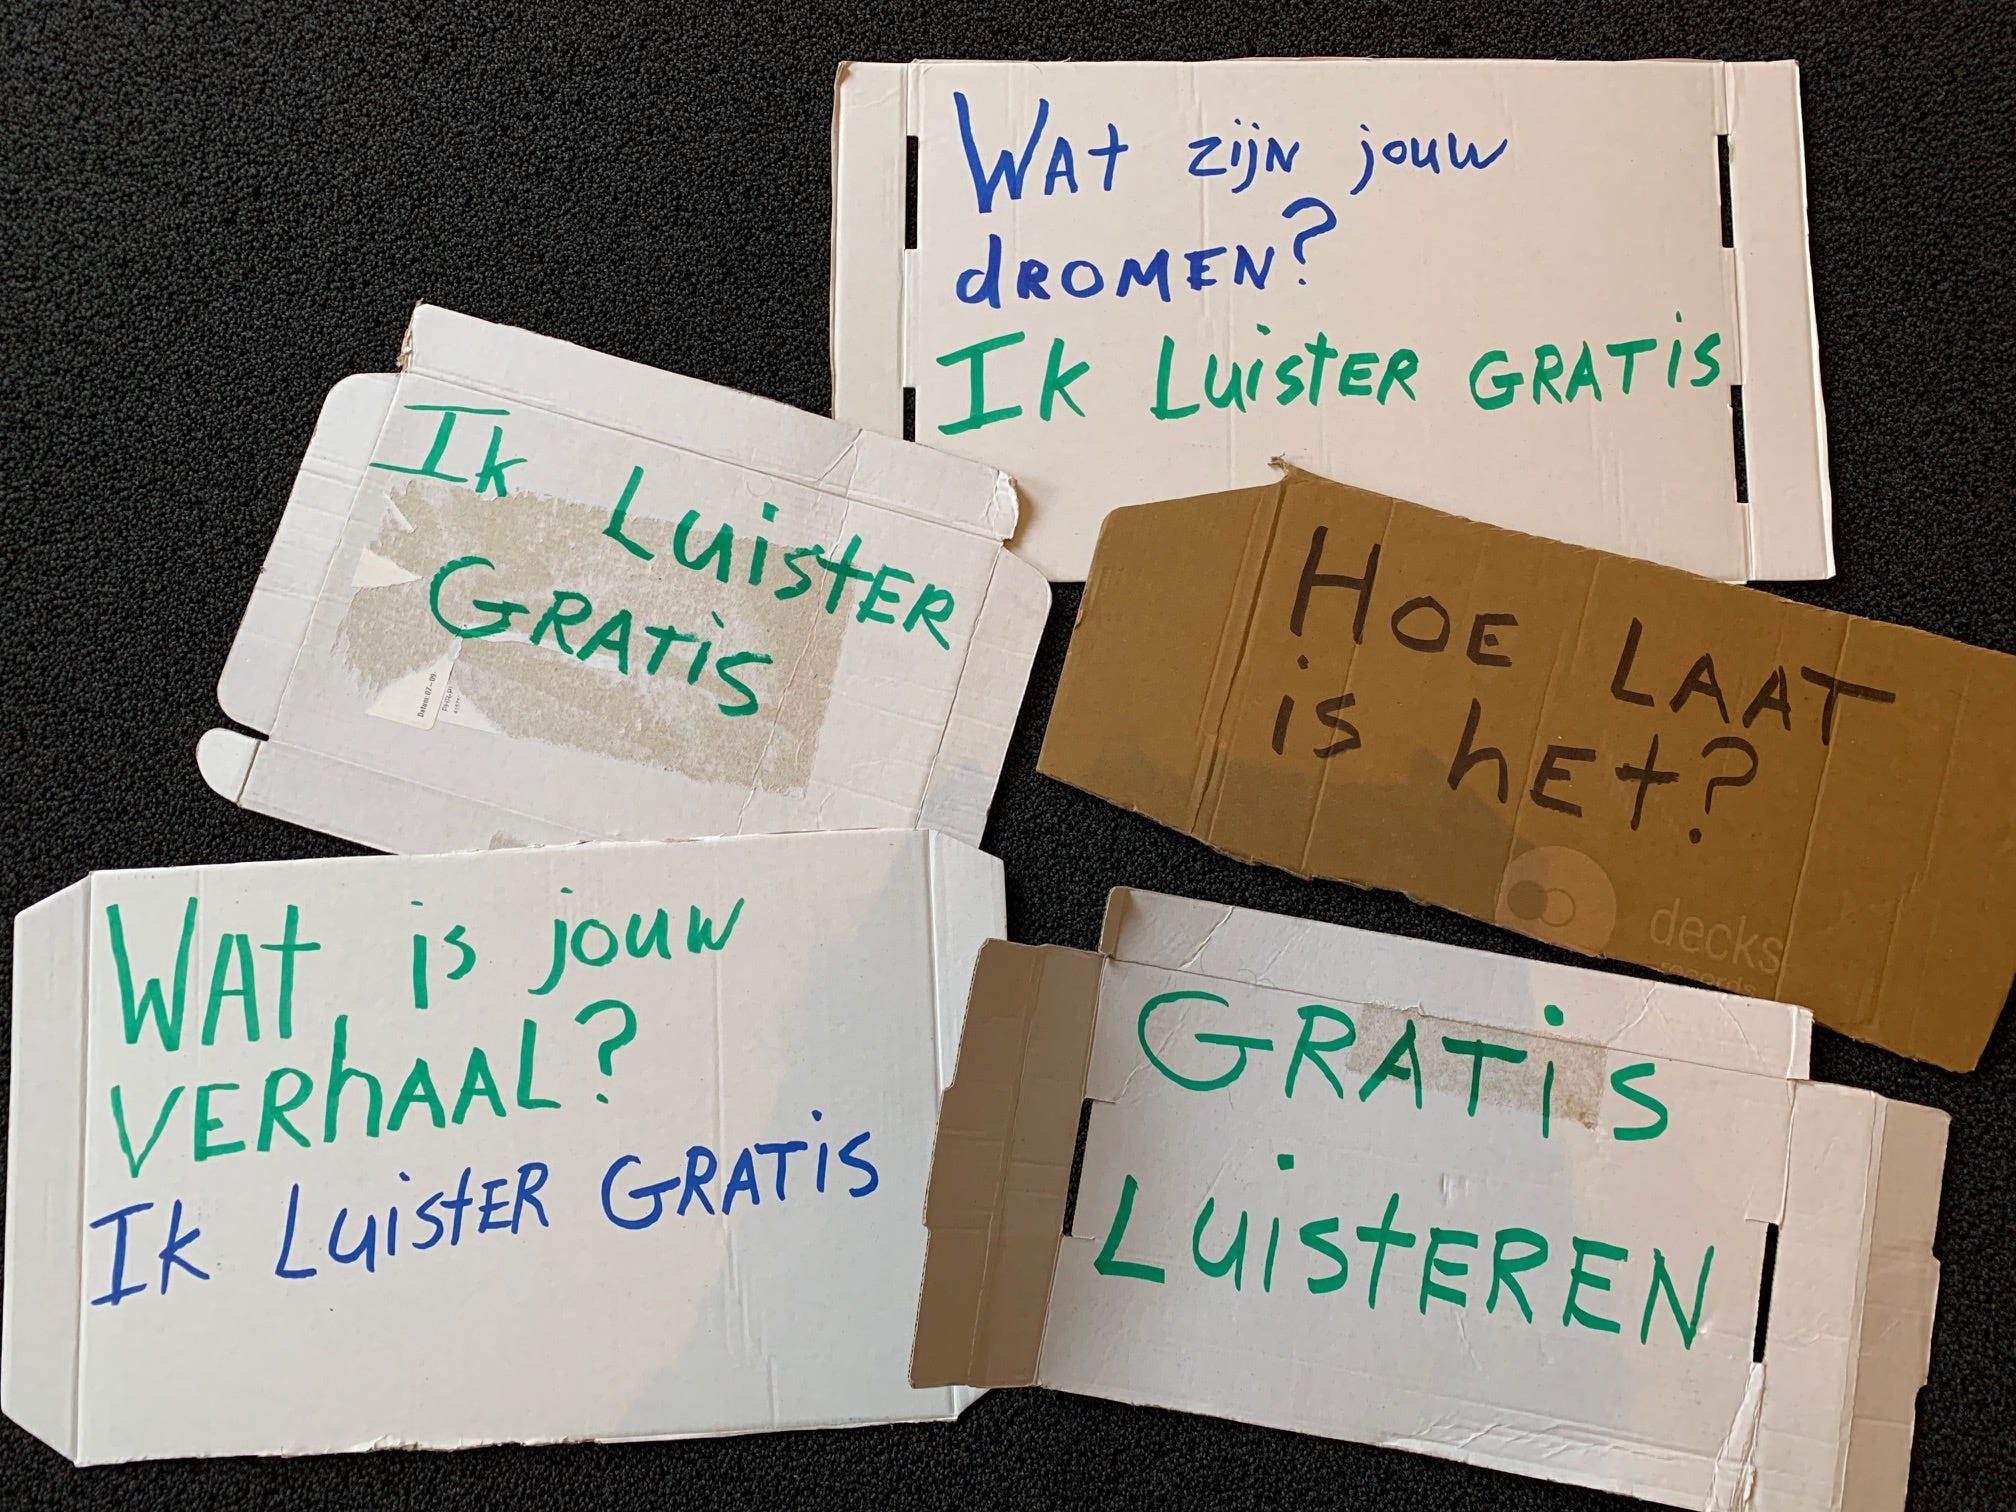 Wat zijn jouw
dromen?
Ik Luister GRATIS
Ik Luister
GRATIS
HOE LAAT
is het?
decks
records
Wat is jouw
verhaal?
Ik Luister GRATIS
GRATIS
LUISTEREN